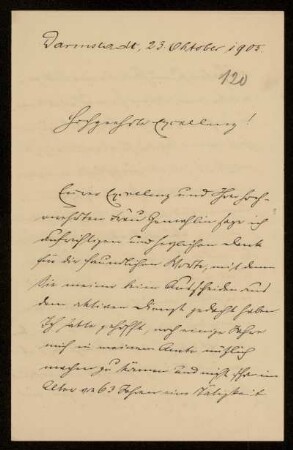 Darmstadt, 23. Oktober 1905.
120
Hochgeehrte Excellenz!
Eurer Excellenz und Ihrer hoch-
verehrten Frau Gemahlin sage ich
aufrichtigen und herzlichen Dank
für die freundlichen Worte, mit denen
Sie meiner beim Ausscheiden aus
dem aktiven Dienst gedacht haben.
Ich hatte gehofft, noch einige Jahre
mich in meinem Amte nützlich
machen zu können und nicht schon im
Alter von 63 Jahren eine Tätigkeit